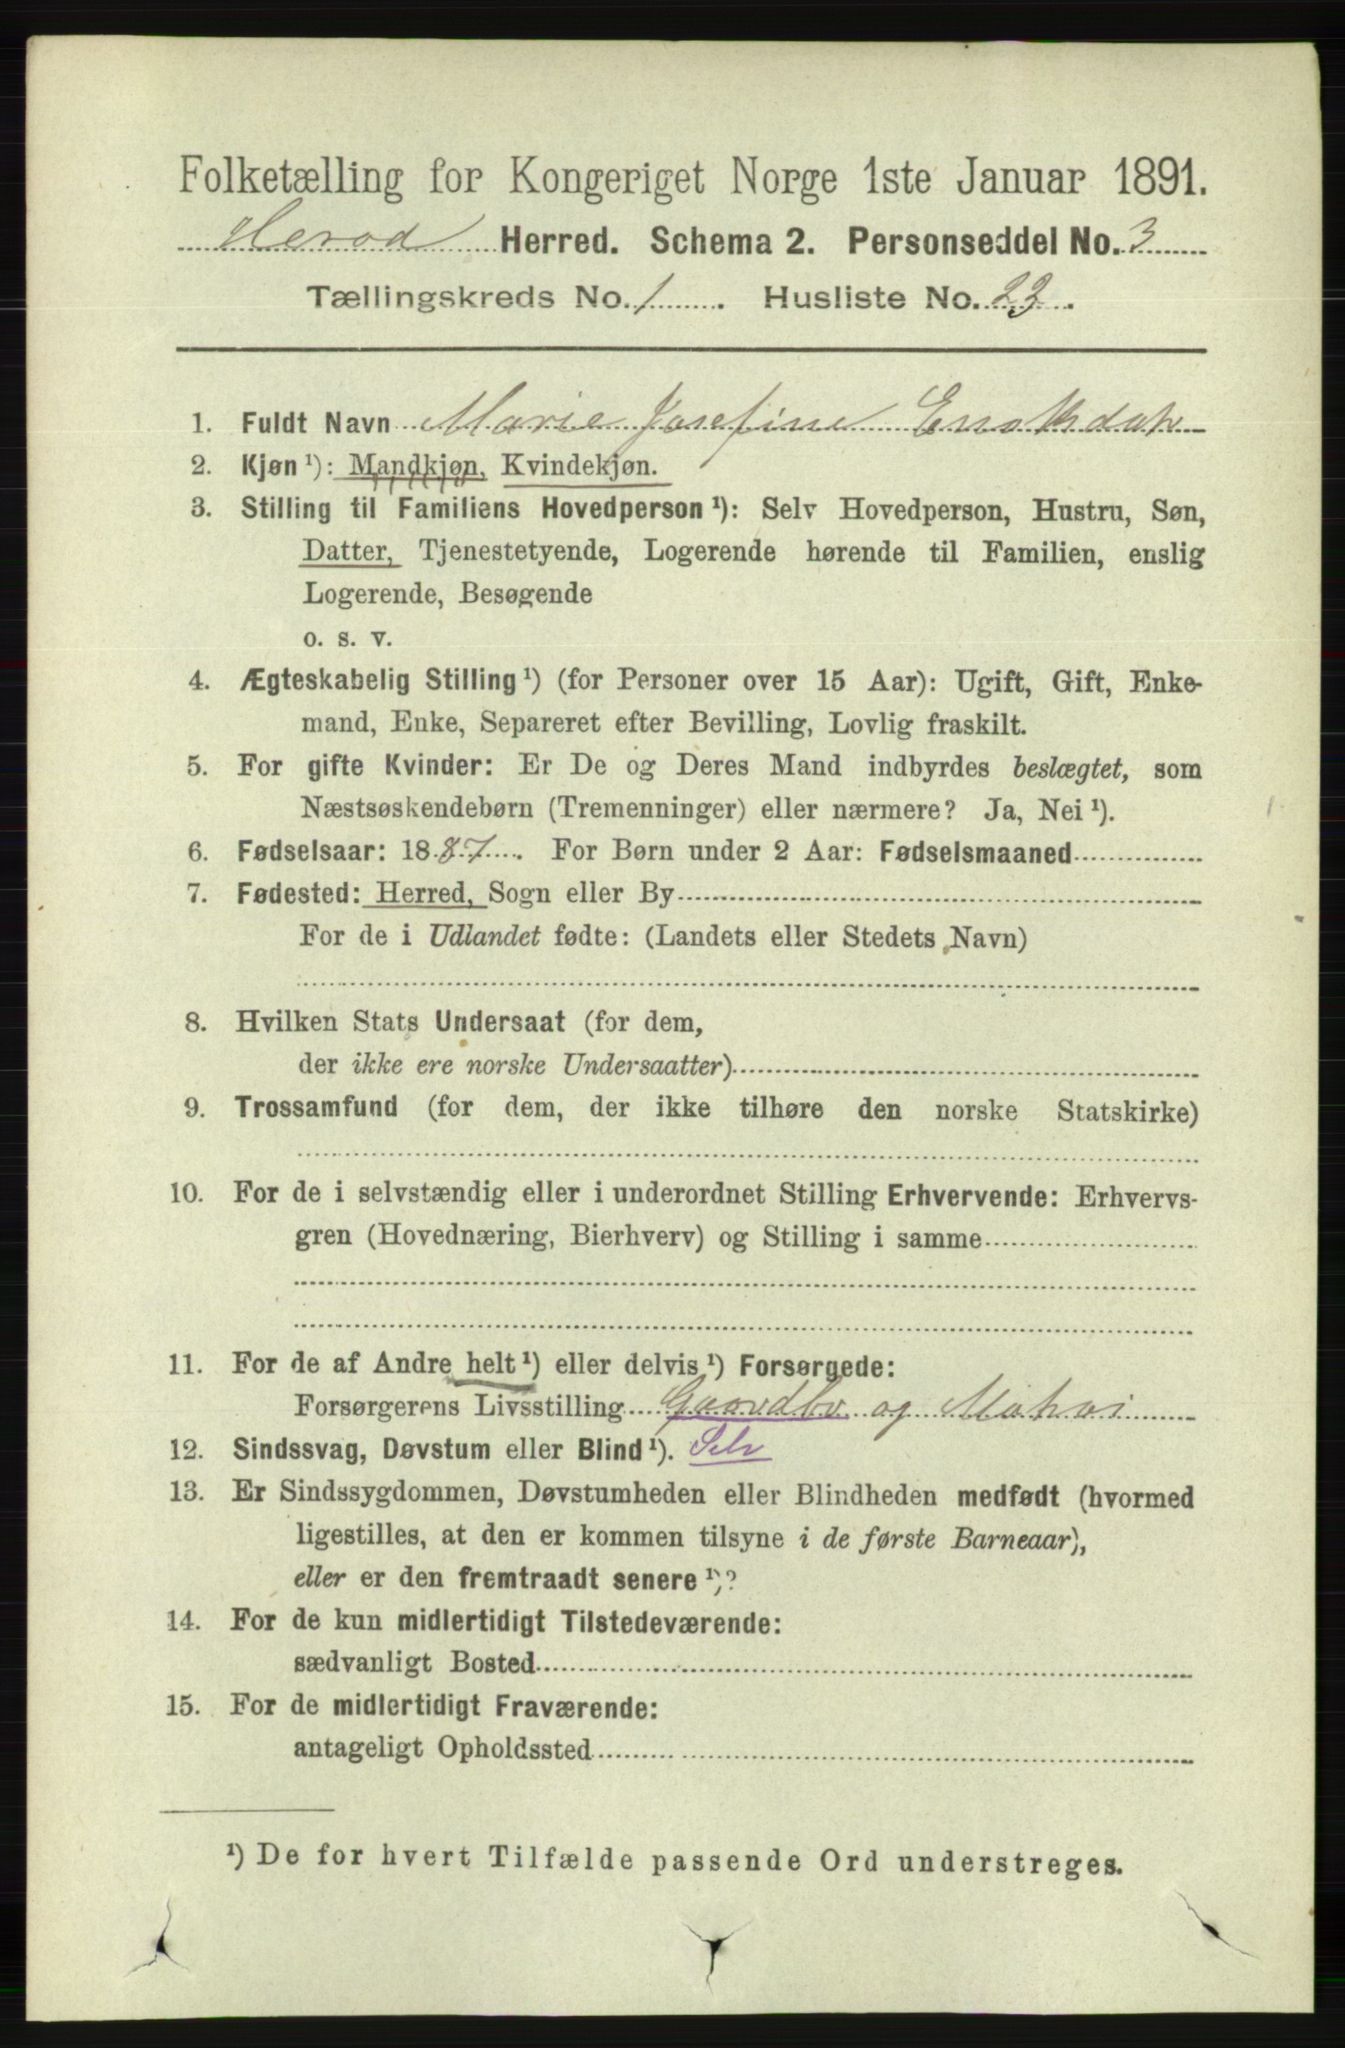 Folketælling for Kongeriget Norge 1ste Januar 1891.
Herod Herred. Schema 2. Personseddel No. 3
Tællingskreds No. 1. Husliste No. 22.
1. Fuldt Navn Marie Josefine
2. Kjøn ¹): Mandkjøn, Kvindekjøn.
3. Stilling til Familiens Hovedperson ¹): Selv Hovedperson, Hustru, Søn,
Datter, Tjenestetyende, Logerende hørende til Familien, enslig
Logerende, Besøgende
o. s. v.
4. Ægteskabelig Stilling ¹) (for Personer over 15 Aar): Ugift, Gift, Enke-
mand, Enke, Separeret efter Bevilling, Lovlig fraskilt.
5. For gifte Kvinder: Er De og Deres Mand indbyrdes beslægtet, som
Næstsøskendebørn (Tremenninger) eller nærmere? Ja, Nei ¹).
6. Fødselsaar: 1887. For Børn under 2 Aar: Fødselsmaaned
7. Fødested: Herred, Sogn eller By
For de i Udlandet fødte: (Landets eller Stedets Navn)
8. Hvilken Stats Undersaat (for dem,
der ikke ere norske Undersaatter)
9. Trossamfund (for dem, der ikke tilhøre den norske Statskirke)
10. For de i selvstændig eller i underordnet Stilling Erhvervende: Erhvervs-
gren (Hovednæring, Bierhverv) og Stilling i samme
11. For de af Andre helt ¹) eller delvis ¹) Forsørgede:
Forsørgerens Livsstilling Gaardbr og
12. Sindssvag, Døvstum eller Blind ¹). Selv
13. Er Sindssygdommen, Døvstumheden eller Blindheden medfødt (hvormed
ligestilles, at den er kommen tilsyne i de første Barneaar),
eller er den fremtraadt senere ¹)?
14. For de kun midlertidigt Tilstedeværende:
sædvanligt Bosted
15. For de midlertidigt Fraværende:
antageligt Opholdssted
¹) De for hvert Tilfælde passende Ord understreges.